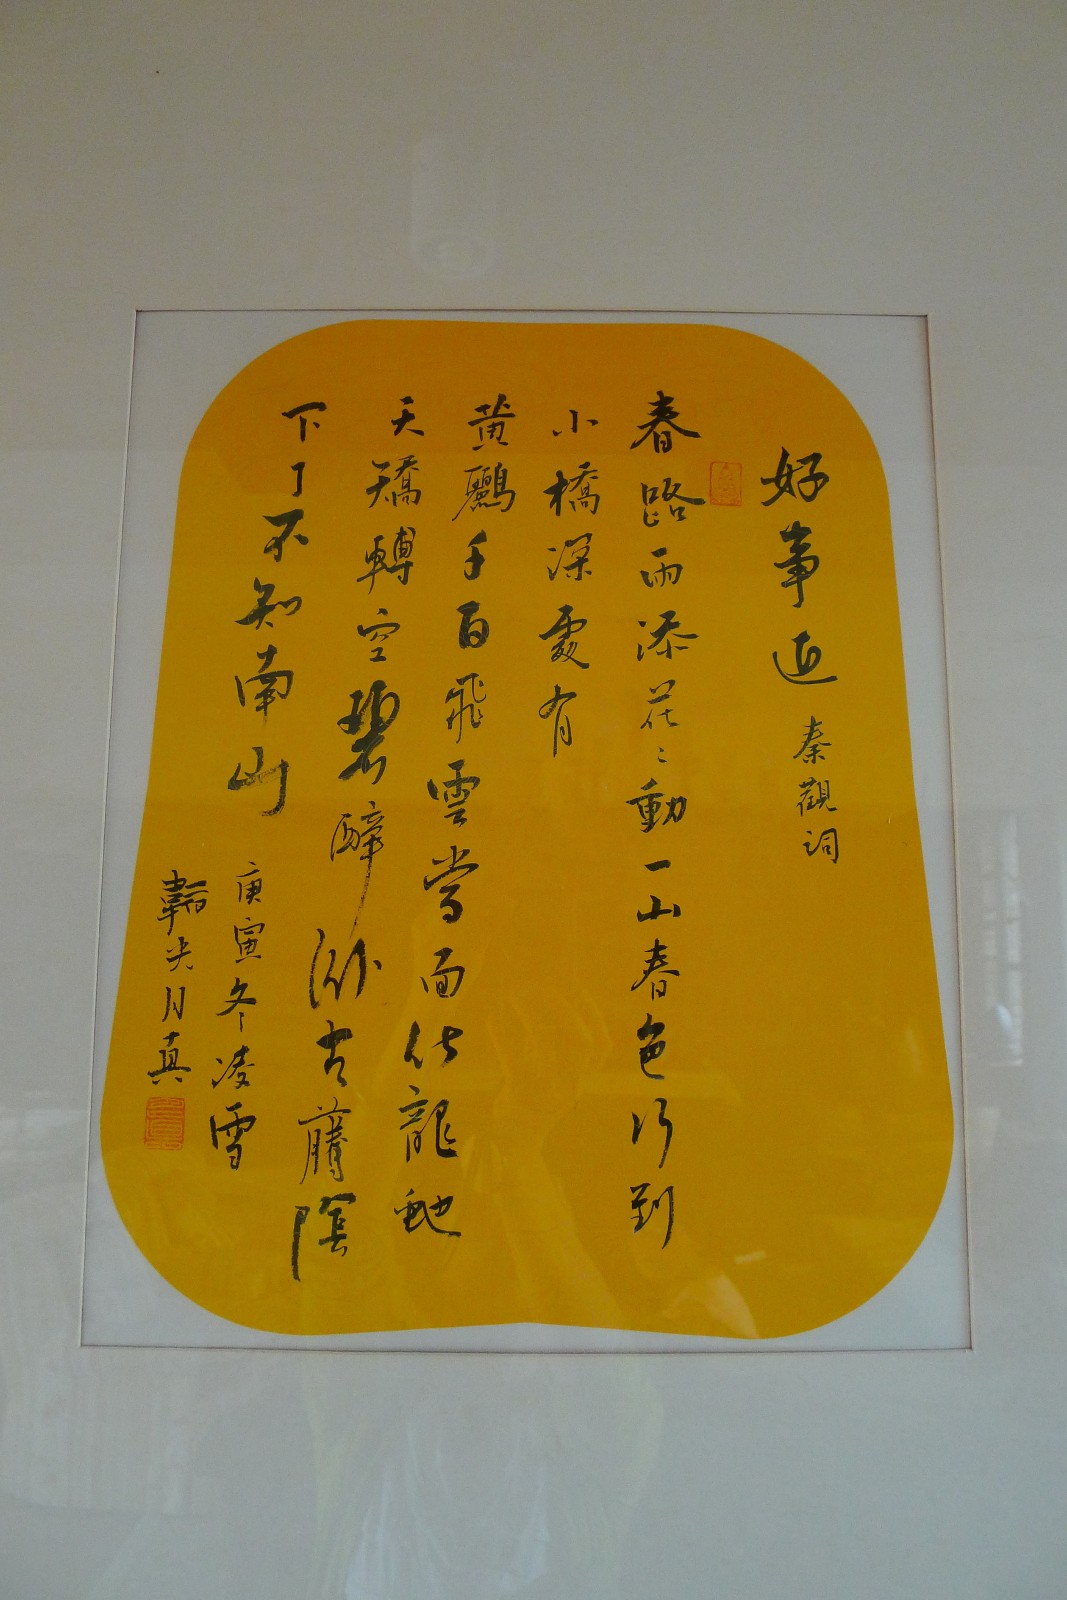 好事近 秦觀詞
春路雨添花〻動一山春色行到
小橋深處有
黃鸝千百飛雲當面化龍虵
天矯轉空碧醉卧古藤陰
下了不知南山
庚寅冬凌雪
韜光月真